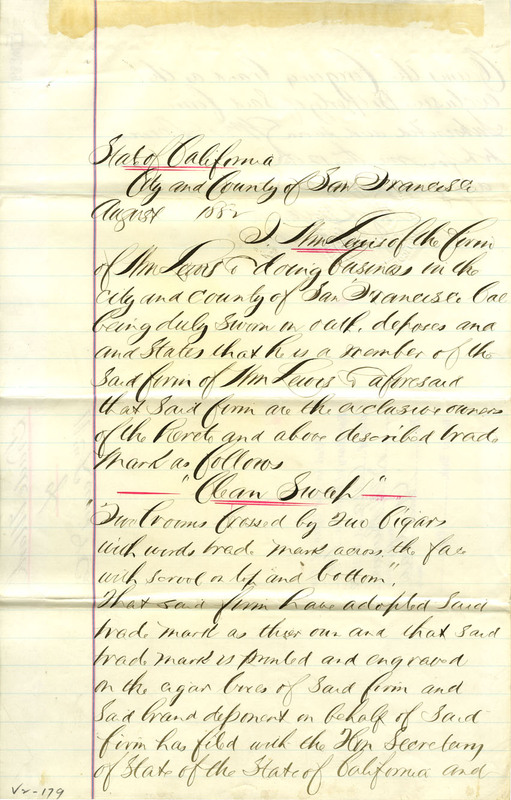 State of California
City and County of San Francisco
August 1882
I, Wm Lewis of the firm
of Wm Lewis & doing business in the
city and county of San Francisco Cal
being duly sworn on oath, deposes and
and States that he is a member of the
said firm of Wm Lewis & aforesaid
that said firm are the exclusive owners
of the hereto and above described trade
mark as follows
"Clean Sweep"
"Two brooms crossed by Two Cigars
with words trade mark across the face
with scrool on top and bottom".
That said firm have adopted said
trade mark as their own and that said
trade mark is printed and engraved
on the cigar boxes of said firm and
said brand deponent on behalf of said
firm has filed with the Hon Secretary
of State of the State of California and
V2-179